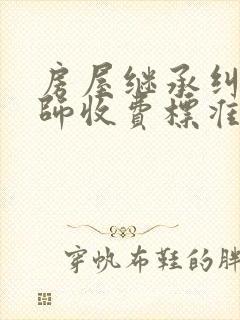 房屋继承纠
師收費標准
穿帆布鞋的胖